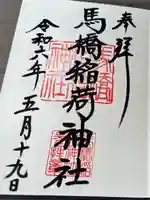 奉拝
馬橋稲荷神社
令和六年 五月十九日